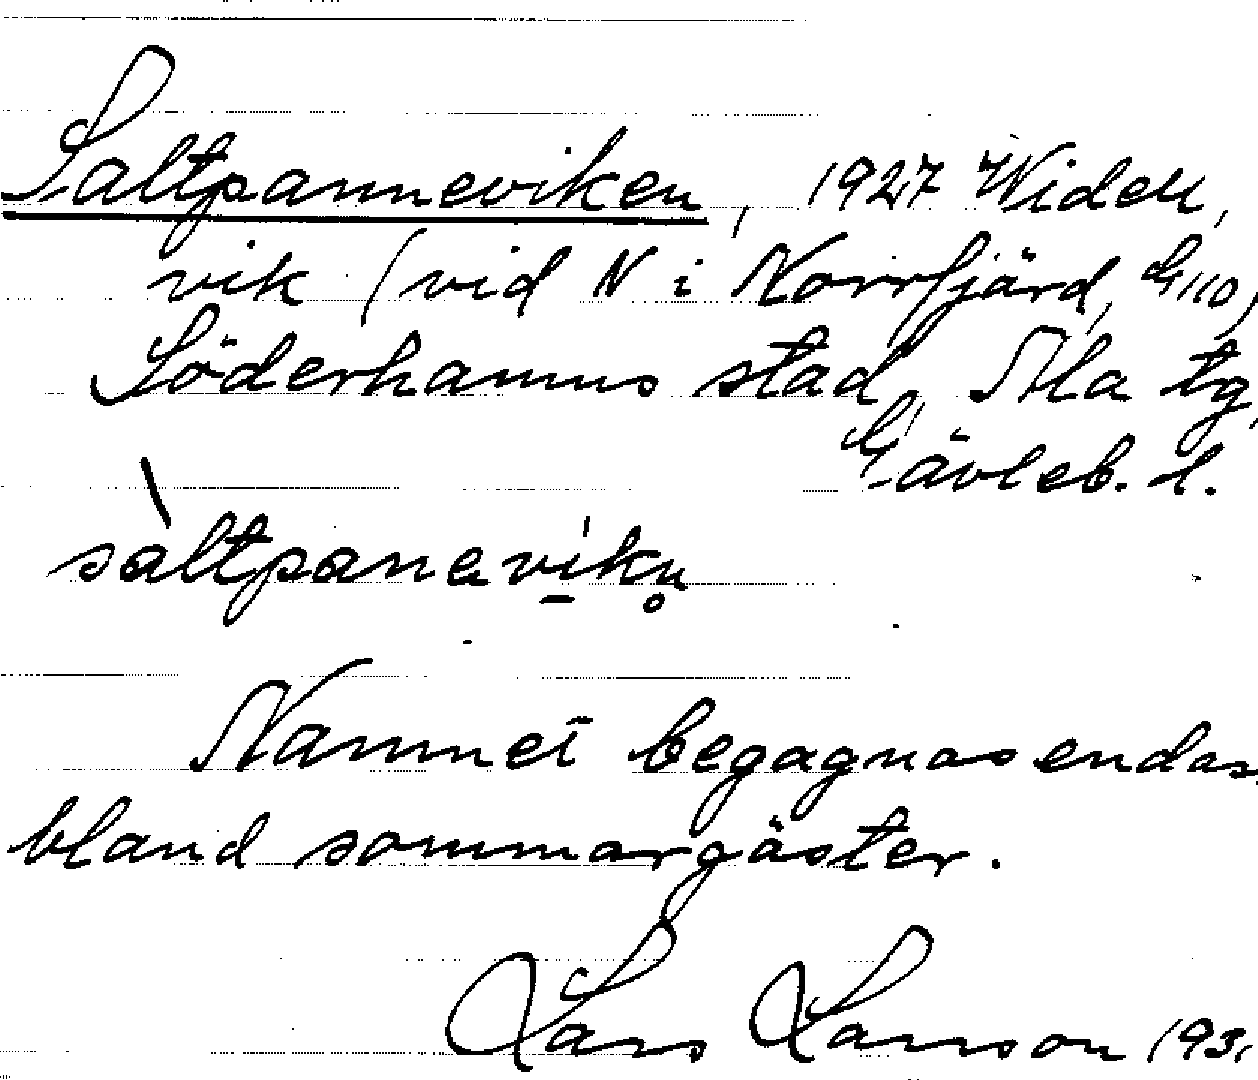 Saltpanneviken, 1927 Widell,
vik (vid N i Norrfjärd, G110)
Söderhamns stad, Ala tg,
Gävleb. l.
sàltpanevikn̥
Namnet begagnas endas
bland sommargäster.
Lars Larsson 193